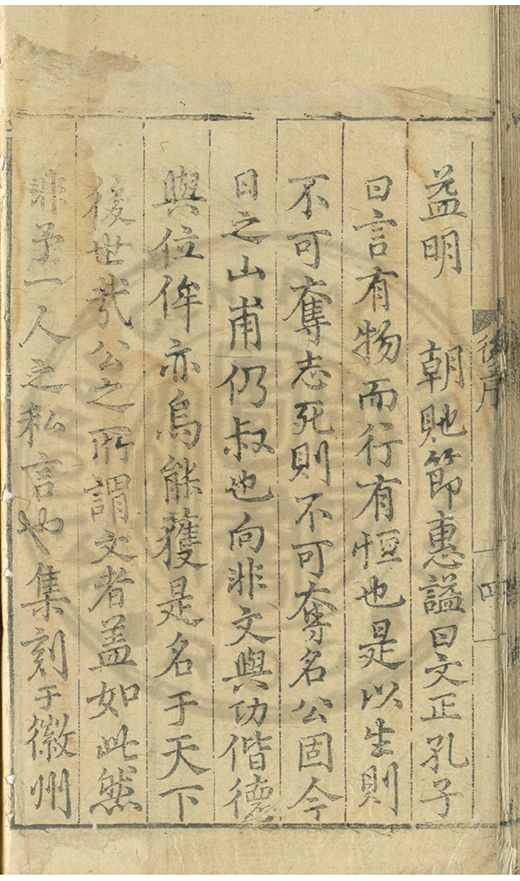 後序
十四
益明　朝貤節惠謚曰文正孔子
曰言有物而行有恒也是以生則
不可奪志死則不可奪名公固今
日之山甫仍叔也向非文與功偕德
與位侔亦烏能穫是名于天下
後世哉公之所謂文者盖如此然
非予一人之私言也集刻于徽州